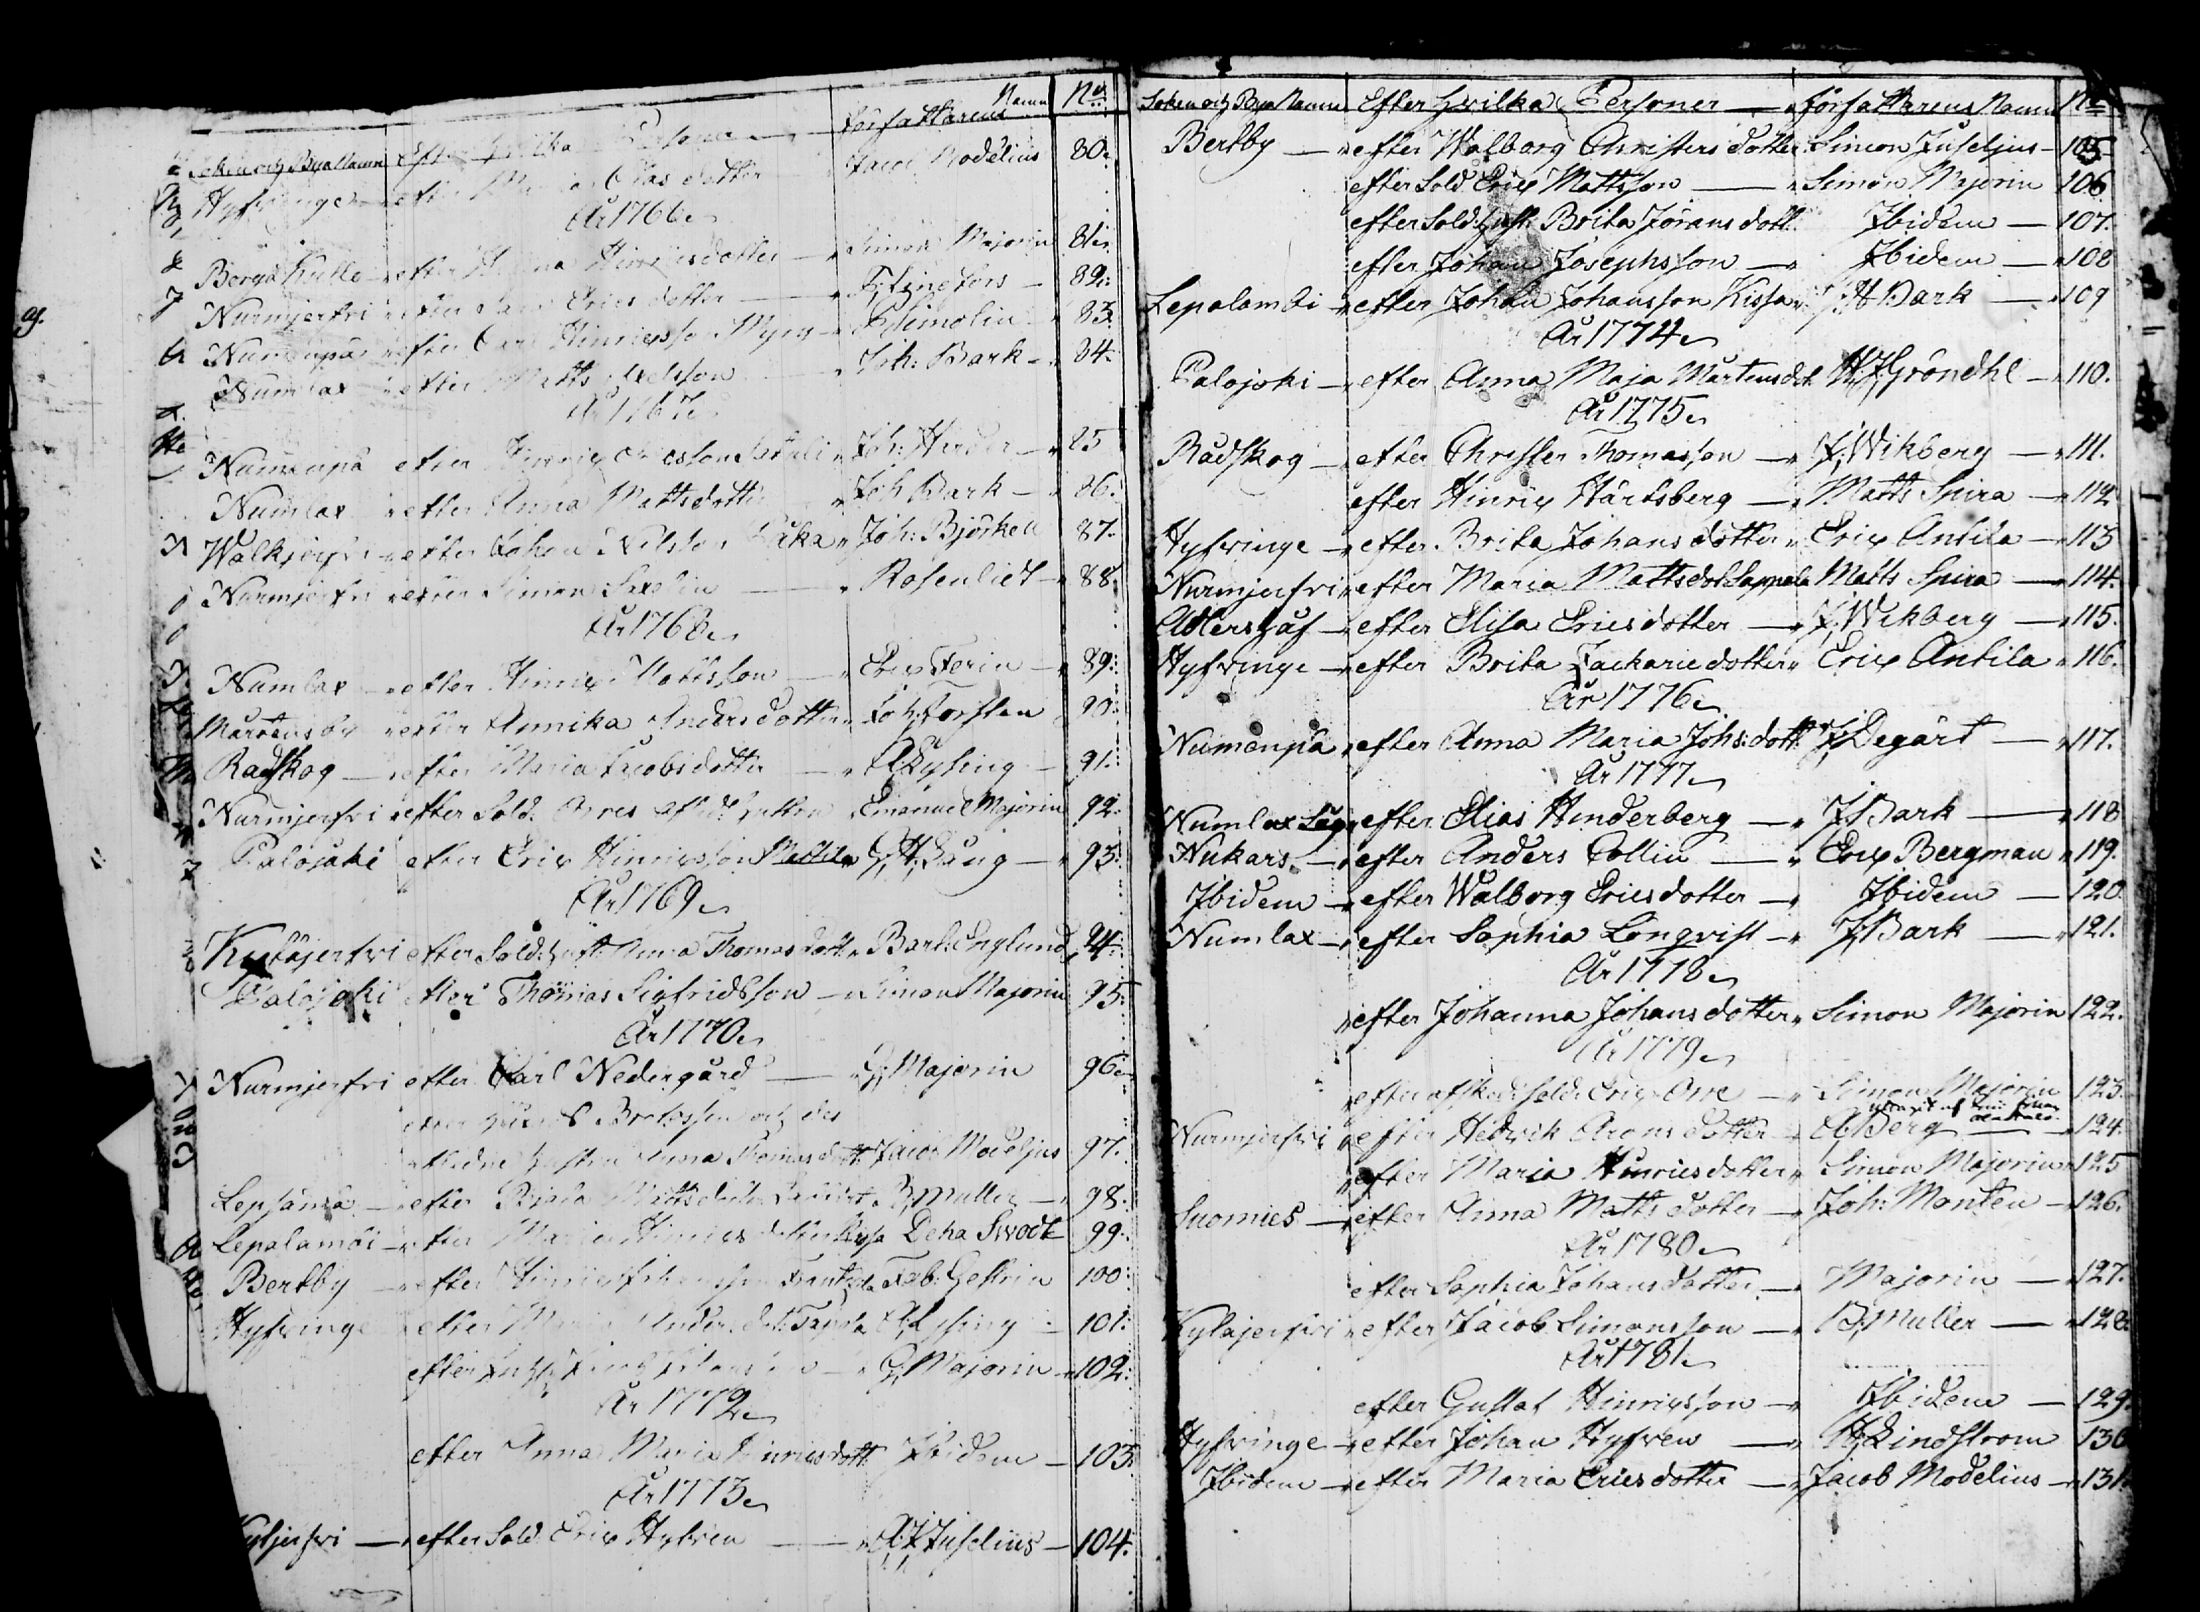 Soken och Bya Namn Efter Personer författarens Namn No
Hyfvinge efter Maria Clas dotter Jacob Modelius 80.
År 1766
Borgå Kulla efter Hinricsdotter Simon Majorin 81.
Nurmjerfvi efter Erics dotter F, Finefors 82.
Numenpä efter Carl Hinricsson Myry Simolin 83.
Numlax efter Matts Axelsson Joh: Bark 84.
År 1767
Numenpä efter Hinric Joh: Herder 85
Numlax efter Anna Mattsdotter Joh Bark 86.
Walkjerfvi efter Johan Nilsson Joh: Björkell 87.
Nurmjerfvi efter Simon Rosenlidt 88.
År 1768
Numlax efter Hinric Mattsson Eric Ferin 89.
Mårtensby efter Annika Andersdotter Joh: Forsten 90.
Radskog efter Maria Jacobsdotter A Kyling 91.
Nurmjerfvi efter Sold. Emanuel Majorin 92.
Palojoki efter Eric Hinricsson Mattila G, H, Lång 93.
År 1769
Kytäjerfvi efter Sold: hust: Anna Thomas dott: Bark: Englund 94.
Palojoki efter Thomas Sigfridsson Simon Majorin 95.
År 1770
Nurmjerfvi efter Carl Nedergård G, Majorin 96
efter och des
hustru Anna Thomasdott: Jacob Modeljus 97.
Lepsämä efter Mattsdott: B, Muller 98.
Lepalambi efter Maria Hinrics dotter Kissa Deka Swodt 99.
Bertby efter Hinric Johansson Frantzila Fab: Gestrin 100.
Hyfvinge efter Maria Anders dot: 101.
efter G, Majorin 102.
År 1772
efter Anna Maria Hinricsdott: Ibidem 103.
År 1773
efter Sold: Eric Hyfvren A, J Juselius 104.
Soken och Bya Namn Efter hvilka Personer författarens Namn No
Bertby efter Walborg Christers dotter Simon Juseljus 105
efter Sold Eric Mattsson Simon Majorin 106
efter Sold: hust: Brita Jörans dott: Ibidem 107.
efter Johan Josephsson Ibidem 108
Lepalambi efter Johan Johansson Kissa J: H Bark 109
År 1774
Palojoki efter Anna Maja Mårtensdot. H, J Gröndhl 110.
År 1775
Rådskog efter Christer Thomasson J, Wikberg 111.
efter Hinric Hårdsberg Matts Spira 112
Hyfvinge efter Brita Johans dotter Eric Antila 113
Nurmjerfvi efter Maria Mattsdot Seppala Matts Spira 114.
Adlershåf efter Elisa Ericsdotter J, Wikberg 115.
Hyfvinge efter Brita Zackarie dotter Eric Antila 116.
År 1776
Numenpä efter Anna Maria Johs: dott: J, Degårt 117.
År 1777
Numlax Säg efter Elias Henderberg J Bark 118
Nukars efter Anders Collin Eric Bergman 119.
Ibidem efter Walborg Ericsdotter Ibidem 120
Numlax efter Sophia Lönqvist J, Bark 121.
År 1778
efter Johanna Johans dotter Simon Majorin 122.
År 1779
efter afsked: Sold: Eric Orre Simon Majorin 123.
Nurmjerfvi efter Hedvik Arons dotter A, Berg 124.
efter Maria Hinricsdotter Simon Majorin 125
Suomies efter Anna Matts dotter Joh: Monten 126.
År 1780
efter Sophia Johans dotter Majorin 127.
Kytäjerfvi efter Jacob Simonsson B, Muller 128.
År 1781
efter Gustaf Hinricsson Ibidem 129.
Hyfvinge efter Johan Hyfvren H, Lindstrom 130
Ibidem efter Maria Ericsdotter Jacob Modelius 131.